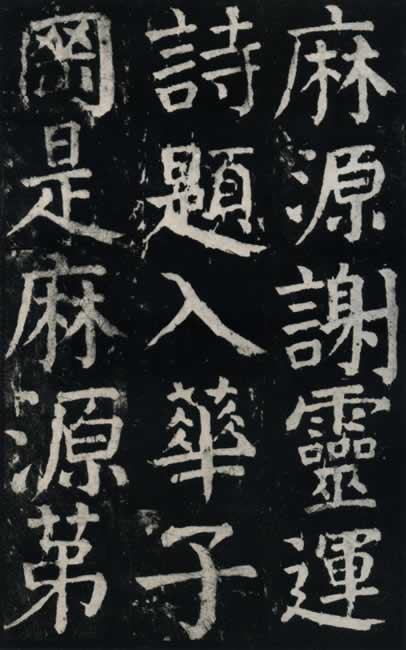 麻源謝靈運
詩題入華子
岡是麻源苐